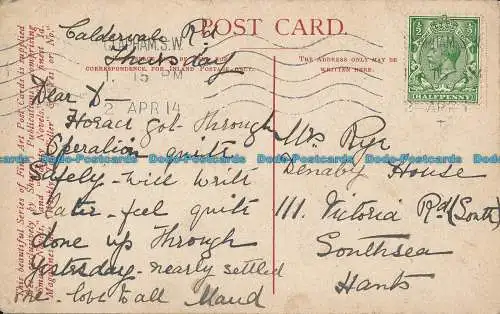 POST CARD.
Caldervale Rd
Thursday
CLAPHAM. S.W.
1 15 PM
2 APR 14
CORRESPONDENCE, FOR INLAND POSTAGE ONLY.
THE ADDRESS ONLY MAY BE
WRITTEN HERE.
HALFPENNY
Dear D
Horace got through
Operation quite
Safely - will write
later - feel quite
done up through
yesterday - nearly settled
me - love to all Maud
Mrs Rye
Denaby House
111. Victoria Rd (South)
Southsea
Hants
This beautiful Series of Fine Art Post Cards is supplied
Dodo-Postcards Dodo-Postcards Dodo-Postcards Dodo-Postcards